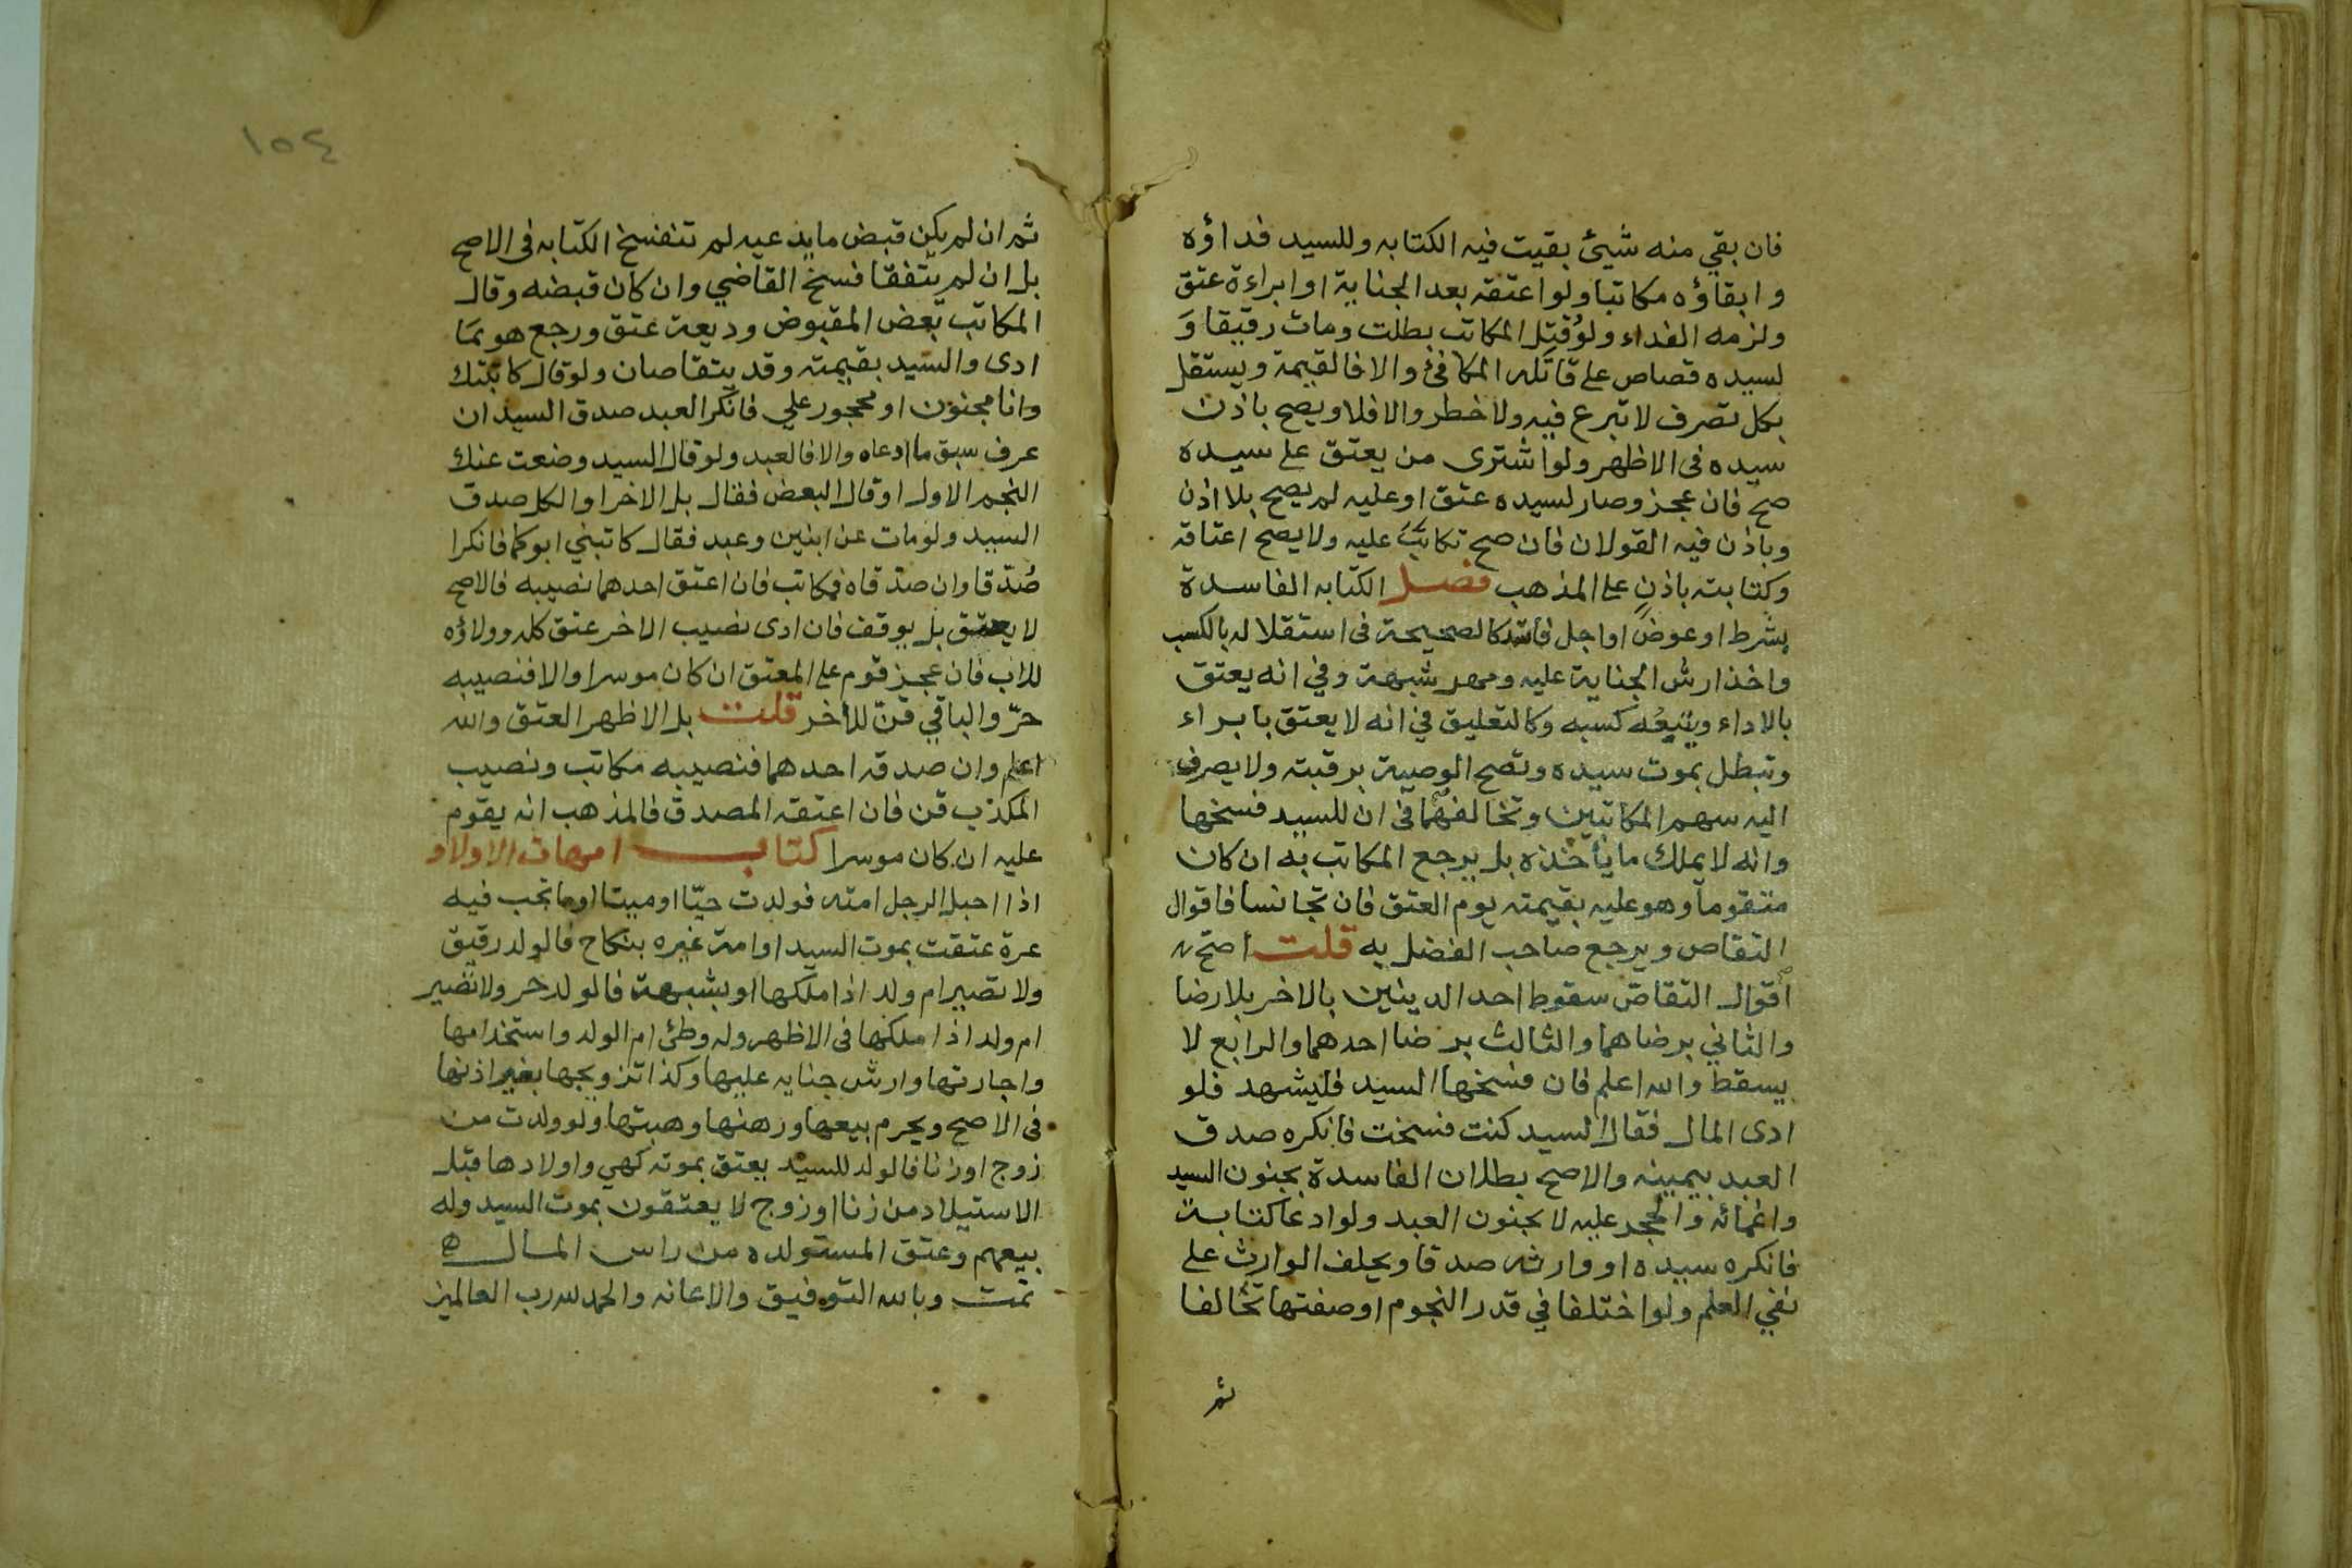 فان بقي منه شيئ بقيت فيه الكتابه وللسيد فداؤه
وابقاؤه مكاتبا ولو اعتقه بعد الجناية او ابراءة عتق
ولزمه الفداء ولو قتل المكاتب بطلت ومات رقيقا وَ
لسيده قصاص على قاتله المكافئ والا فالقيمة ويستقل
بكل تصرف لا تبرع فيه ولا خطر والا فلا ويصح باذن
سيده فى الاظهر ولو اشترى من يعتق على سيده
صح فان عجز وصار لسيده عتق او عليه لم يصح بلا اذن
وباذن فيه القولان فان صح تكاتب عليه ولا يصح اعتاقه
وكتابته باذن على المذهب فصل الكتابه الفاسدة
بشرط او عوض او اجل فاسد كالصحيحة فى استقلاله بالكسب
واخذ ارش الجناية عليه ومهر شبهة وفي انه يعتق
بالاداء ويتبعه كسبه وكالتعليق في انه لا يعتق بابراء
وتبطل بموت سيده وتصح الوصية برقبته ولا يصرف
اليه سهم المكاتبين وتخالفهما فى ان للسيد فسخها
وانه لا يملك ما يأخذه بل يرجع المكاتب به ان كان
متقوما وهو عليه بقيمته يوم العتق فان تجانسا فاقوال
التقاص ويرجع صاحب الفضل به قلت اصح
اقوال التقاصّ سقوط احد الدينين بالاخر بلا رضا
والثاني برضاهما والثالث برضا احدهما والرابع لا
يسقط والله اعلم فان فسخها السيد فليشهد فلو
ادى المال فقال السيد كنت فسخت فانكره صدق
العبد بيمينه والاصح بطلان الفاسدة بجنون السيد
واغمائه والحجر عليه لا بجنون العبد ولو ادعا كتابة
فانكره سيده او وارثه صدقا ويحلف الوارث على
نفي العلم ولو اختلفا في قدر النجوم او صفتها تحالفا
ثم
١٥٤
ثم ان لم يكن قبض ما يدعيه لم تنفسخ الكتابه فى الاصح
بل ان لم يتفقا فسخ القاضي وان كان قبضه وقال
المكاتب بعض المقبوض وديعة عتق ورجع هو بمَا
ادى والسيد بقيمته وقد يتقاصان ولو قال كاتبتك
وانا مجنون او محجور علي فانكر العبد صدق السيد ان
عرف سبق ما ادعاه والا فالعبد ولو قال السيد وضعت عنك
النجم الاول او قال البعض فقال بل الاخر او الكل صدق
السيد ولو مات عن ابنين وعبد فقال كاتبني ابوكما فانكرا
صُدّقا وان صدّقاه فمكاتب فان اعتق احدهما نصيبه فالاصح
لا يعتق بل يوقف فان ادى نصيب الاخر عتق كله وولاؤه
للاب فان عجز قوم على المعتق ان كان موسرا والا فنصيبه
حرّ والباقي قنّ للأخر قلت بل الاظهر العتق والله
اعلم وان صدقه احدهما فنصيبه مكاتب ونصيب
المكذب قن فان اعتقه المصدق فالمذهب انه يقوم
عليه ان كان موسرا كتاب امهات الاولاد
اذا احبل الرجل امته فولدت حيّا او ميتا او ما تجب فيه
غرة عتقت بموت السيد او امة غيره بنكاح فالولد رقيق
ولا تصير ام ولد اذا ملكها او بشبهة فالولد حر ولا تصير
ام ولد اذا ملكها فى الاظهر وله وطئ ام الولد واستخدامها
واجارتها وارش جنايه عليها وكذا تزويجها بغير اذنها
فى الاصح ويحرم بيعها ورهنها وهبتها ولو ولدت من
زوج او زنا فالولد للسيد يعتق بموته كهي واولادها قبل
الاستيلاد من زنا او زوج لا يعتقون بموت السيد وله
بيعهم وعتق المستولده من راس المال ه
تمت وبالله التوفيق والاعانه والحمد لله رب العالمين